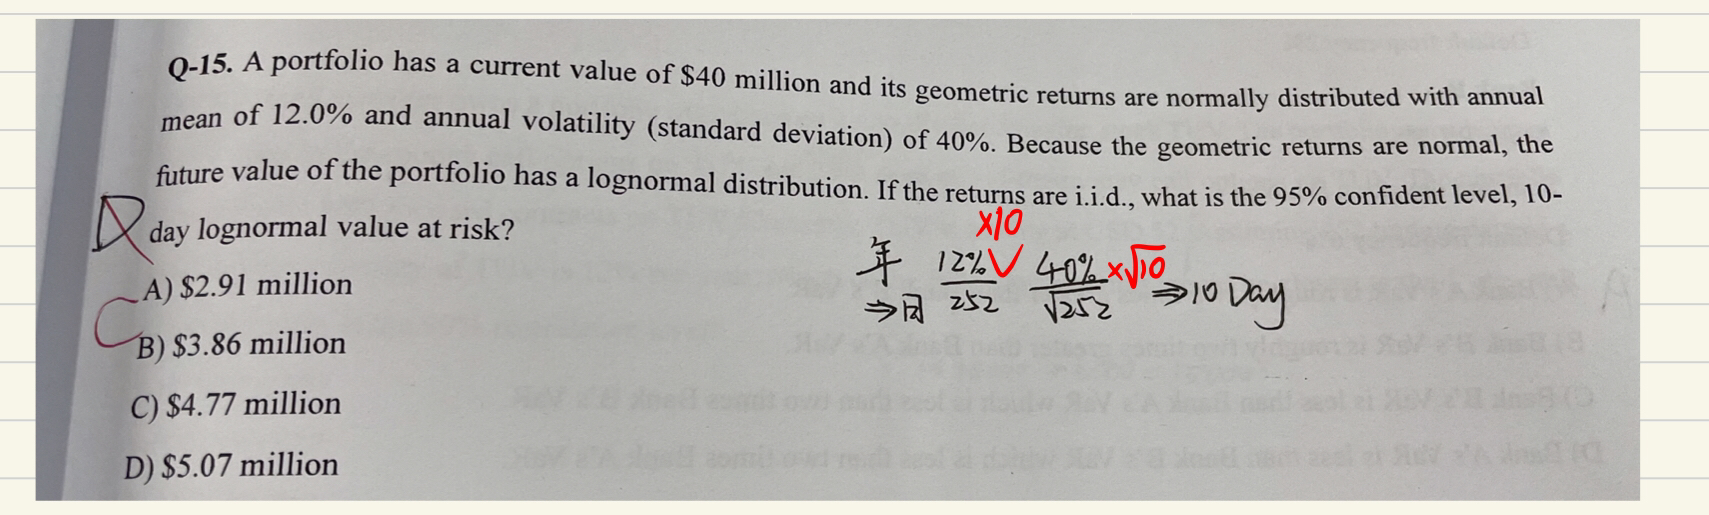 Q-15. A portfolio has a current value of $40 million and its geometric returns are normally distributed with annual
mean of 12.0% and annual volatility (standard deviation) of 40%. Because the geometric returns are normal, the
future value of the portfolio has a lognormal distribution. If the returns are i.i.d., what is the 95% confident level, 10-
D day lognormal value at risk?
×10
年 12% 40% ×√10
⇒日 252 √252 ⇒10 Day
A) $2.91 million
C
B) $3.86 million
C) $4.77 million
D) $5.07 million